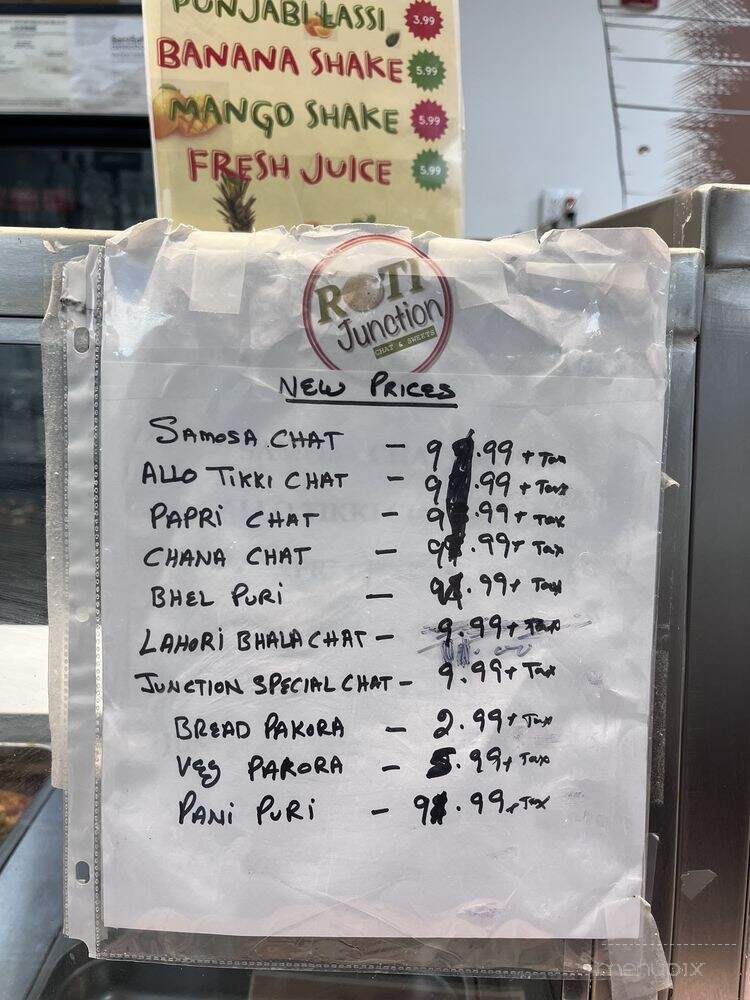 PUNJABI LASSI 3.99
BANANA SHAKE 5.99
MANGO SHAKE 5.99
FRESH JUICE 5.99
ROTI
Junction
CHAT & SWEETS
NEW PRICES
SAMOSA CHAT - 9.99 + Tax
ALLO TIKKI CHAT - 9.99 + Tax
PAPRI CHAT - 9.99 + Tax
CHANA CHAT - 9.99+ Tax
BHEL PURI - 9.99+ Tax
LAHORI BHALA CHAT - 9.99+ Tax
JUNCTION SPECIAL CHAT - 9.99+ Tax
BREAD PAKORA - 2.99+ Tax
Veg PAKORA - 5.99+ Tax
PANI PURI - 9.99+ Tax
menupix